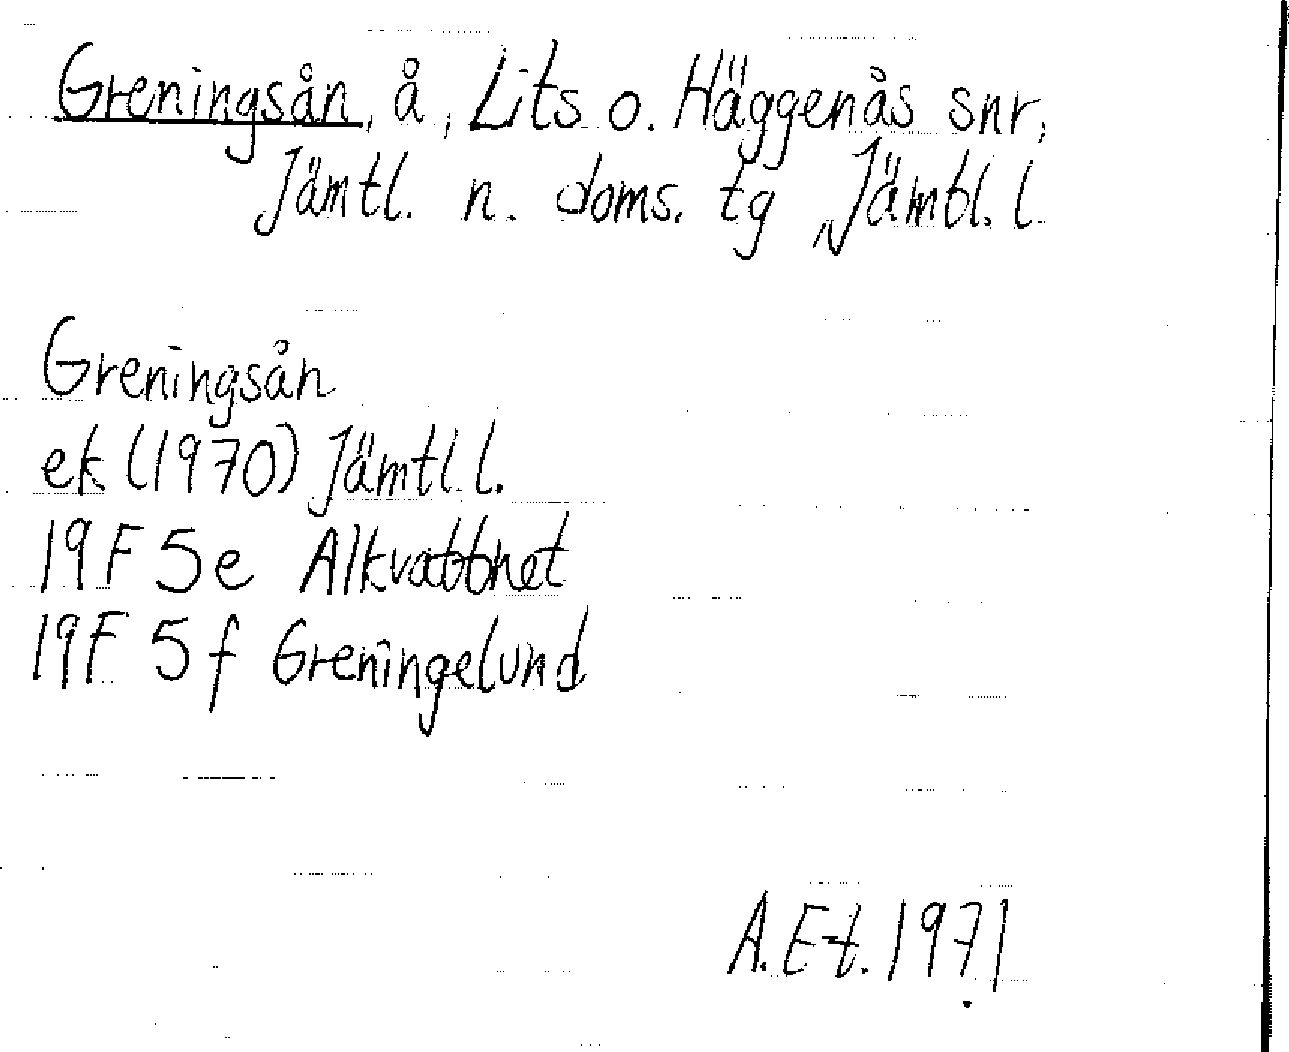 Greningsån, å, Lits o. Häggenås snr,
Jämtl. n. doms. tg, Jämtl. l.
Greningsån
ek (1970) Jämtl. l.
19F 5e Alkvattnet
19F 5f Greningelund
A.Et. 1971